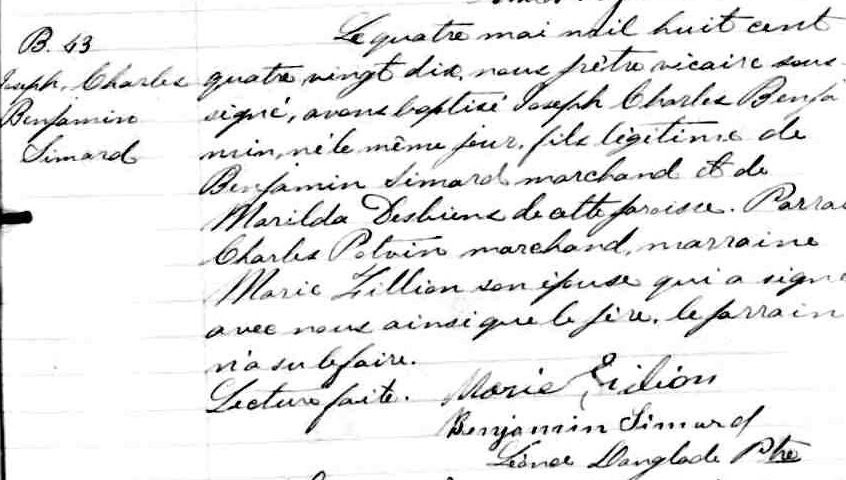 B. 43
Joseph, Charles
Benjamin
Simard
Le quatre mai mil huit cent
quatre vingt dix, nous prêtre vicaire sous-
signé, avons baptisé Joseph Charles Benja
min, né le même jour, fils légitime de
Benjamin Simard marchand et de
Marilda Desbiens de cette paroisse. Parrai
Charles Potvin marchand, marraine
Marie Fillion son épouse qui a signé
avec nous ainsi que le père, le parrain
n'a su le faire.
Lecture faite.
Marie Filion
Benjamin Simard
Léonce Danglade Ptre